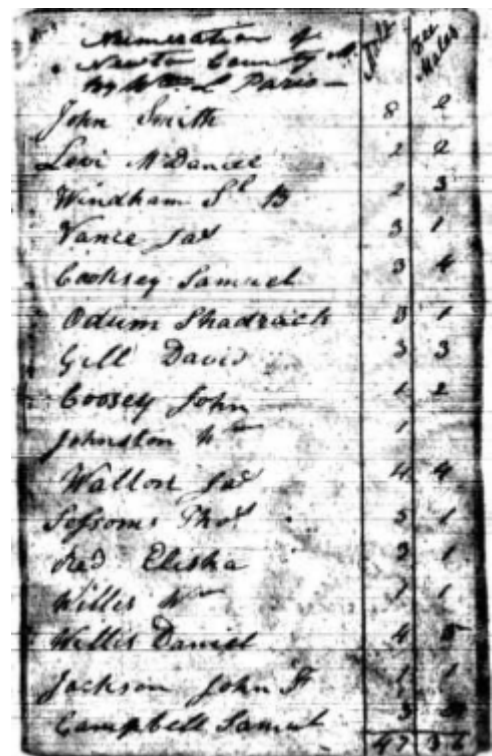 Numeration of
Newton County M
By Wm L Paris — Male Fee Males
John Smith 8 2
Levi McDaniel 2 2
Windham Sl B 2 3
Vance Jas 3 1
Cooksey Samuel 3 4
Odum Shadrack 3 1
Gill David 3 3
Coosey John 1 2
Johnston Wm 1
Walton Jas 4 4
Sessoms Thos 3 1
Red Elisha 3 1
Willis Wm 1 1
Willis Daniel 4 5
Jackson John 1 1
Campbell Samul 3